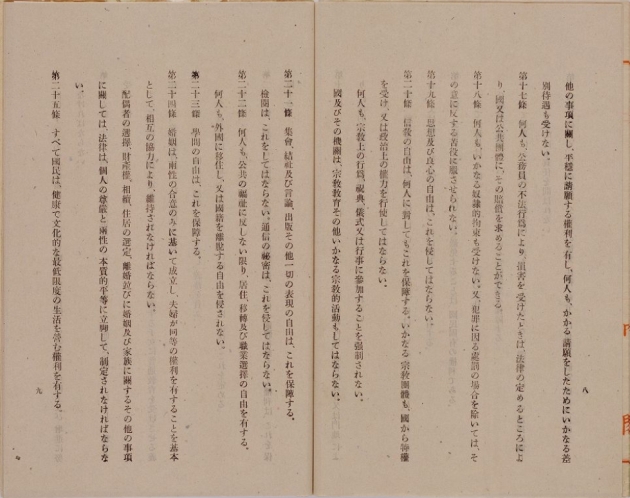 他の事項に關し、平穩に請願する權利を有し、何人も、かかる請願をしたためにいかなる差
別待遇も受けない。
第十七條　何人も、公務員の不法行爲により、損害を受けたときは、法律の定めるところによ
り、國又は公共團體に、その賠償を求めることができる。
第十八條　何人も、いかなる奴隷的拘束も受けない。又、犯罪に因る處罰の場合を除いては、そ
の意に反する苦役に服させられない。
第十九條　思想及び良心の自由は、これを侵してはならない。
第二十條　信敎の自由は、何人に對してもこれを保障する。いかなる宗敎團體も、國から特權
を受け、又は政治上の權力を行使してはならない。
何人も、宗敎上の行爲、祝典、儀式又は行事に參加することを强制されない。
國及びその機關は、宗敎敎育その他いかなる宗敎的活動もしてはならない。
八
第二十一條　集會、結社及び言論、出版その他一切の表現の自由は、これを保障する。
檢閱は、これをしてはならない。通信の祕密は、これを侵してはならない。
第二十二條　何人も、公共の福祉に反しない限り、居住、移轉及び職業選擇の自由を有する。
何人も、外國に移住し、又は國籍を離脫する自由を侵されない。
第二十三條　學問の自由は、これを保障する。
第二十四條　婚姻は、兩性の合意のみに基いて成立し、夫婦が同等の權利を有することを基本
として、相互の協力により、維持されなければならない。
配偶者の選擇、財產權、相續、住居の選定、離婚竝びに婚姻及び家族に關するその他の事項
に關しては、法律は、個人の尊嚴と兩性の本質的平等に立脚して、制定されなければならな
い。
第二十五條　すべて國民は、健康で文化的な最低限度の生活を營む權利を有する。
九